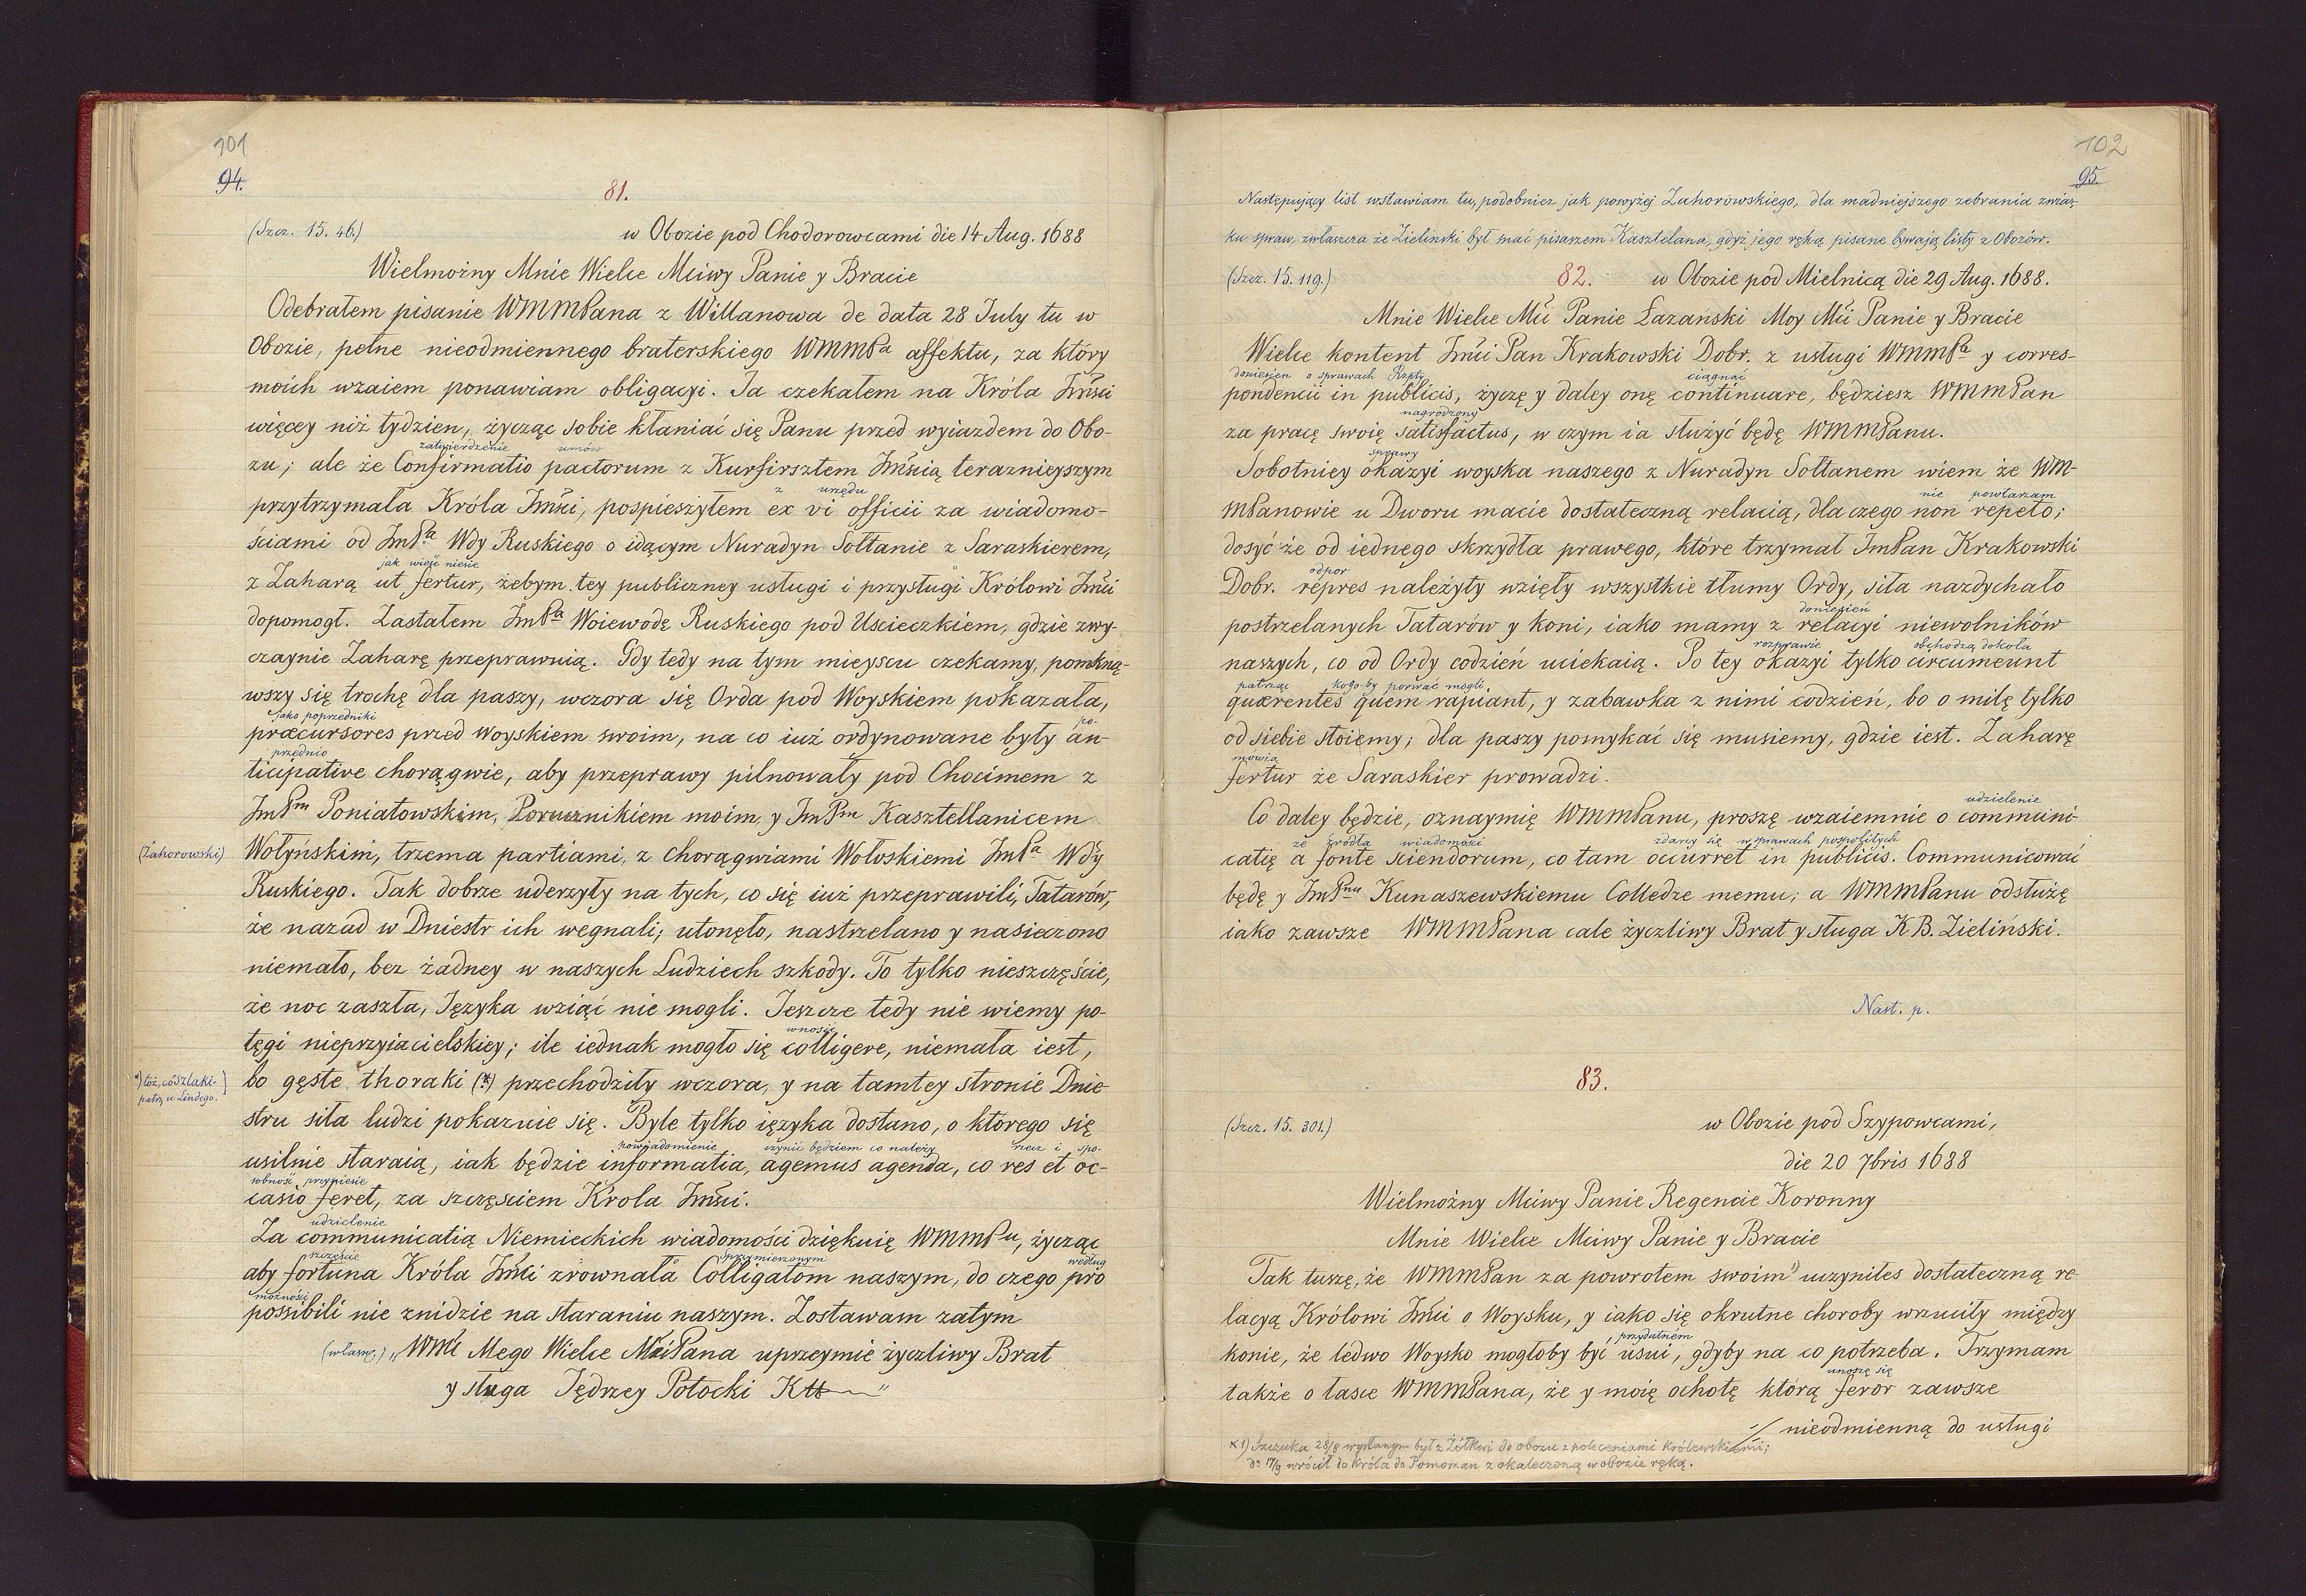 101
94.
81.
(Szcz. 15. 46.)
w Obozie pod Chodorowcami die 14 Aug. 1688
Wielmożny Mnie Wielce Mciwy Panie y Bracie
Odebrałem pisanie WMMPana z Willanowa de data 28 July tu w
Obozie, pełne nieodmiennego braterskiego WMMPa affektu, za który
moich wzaiem ponawiam obligacyi. Ja czekałem na Króla Jmści
więcey niż tydzien, życząc sobie kłaniać się Panu przed wyiazdem do Obo-
zatwierdzenie umów
zu; ale że Confirmatio pactorum z Kurfirsztem Jmścią teraznieyszym
z urzędu
przytrzymała Króla Jmści, pospieszyłem ex vi officii za wiadomo-
ściami od JmPa Wdy Ruskiego o idącym Nuradyn Sołtanie z Saraskierem,
jak wieść niesie
z Zaharą ut fertur, żebym tey publiczney usługi i przysługi Królowi Jmści
dopomogł. Zastałem JmPa Woiewodę Ruskiego pod Uscieczkiem, gdzie zwy-
czaynie Zaharę przeprawuią. Gdy tedy na tym mieyscu czekamy, pomkną-
wszy się trochę dla paszy, wczora się Orda pod Woyskiem pokazała,
jako poprzedniki
præcursores przed woyskiem swoim, na co iuż ordynowane były an-
po-
przednio
ticipative chorągwie, aby przeprawy pilnowały pod Chocimem z
JmPm Poniatowskim, Porucznikiem moim, y JmPm Kasztellanicem
(Zahorowski)
Wołyńskim, trzema partiami, z chorągwiami Wołoskiemi JmPa Wdy
Ruskiego. Tak dobrze uderzyły na tych, co się iuż przeprawili, Tatarów,
że nazad w Dniestr ich wegnali; utonęło, nastrzelano y nasieczono
niemało, bez żadney w naszych Ludziech szkody. To tylko nieszczęście,
że noc zaszła, Języka wziąć nie mogli. Jeszcze tedy nie wiemy po-
wnosić
tęgi nieprzyiacielskiey; ile iednak mogło się colligere, niemała iest,
*) toż, co szlaki-
patrz u Lindego.
bo gęste thoraki (*) przechodziły wczora, y na tamtey stronie Dnie-
stru siła ludzi pokazuie się. Byle tylko ięzyka dostano, o którego się
powiadomienie czynić będziem co należy rzecz i spo-
usilnie staraią, iak będzie informatia, agemus agenda, co res et oc-
sobność przyniesie
casio feret, za szczęsciem Krola Jmści.
udzielenie
Za communicatią Niemieckich wiadomości dziękuię WMMPu, życząc
szczęście sprzymierzonym według
aby fortuna Króla Jmści zrownała Colligatom naszym, do czego pro
możności
possibili nie znidzie na staraniu naszym. Zostawam zatym
(własną) "WMć Mego Wielce MściPana uprzeymie życzliwy Brat
y sługa Jędrzey Potocki Ktt"
102
95.
Następujący list wstawiam tu, podobnież jak powyżej Zahorowskiego, dla snadniejszego zebrania związ-
ku spraw, zwłaszcza że Zieliński był snać pisarzem Kasztelana, gdyż jego ręką pisane bywają listy z Obozów.
(Szcz. 15. 119.)
82. w Obozie pod Mielnicą die 29 Aug. 1688.
Mnie Wielce Mci Panie Łazański Moy Mci Panie y Bracie
Wielce kontent Jmści Pan Krakowski Dobr. z usługi WMMPa y corres-
doniesien o sprawach Rzpty ciągnąć
pondencii in publicis, życzę y daley onę continuare, będziesz WMMPan
nagrodzony
za pracę swoię satisfactus, w czym ia służyć będę WMMPanu.
sprawy
Sobotniey okazyi woyska naszego z Nuradyn Sołtanem wiem że WM-
nie powtarzam
MPanowie u Dworu macie dostateczną relacią, dla czego non repeto;
dosyć że od iednego skrzydła prawego, które trzymał JmPan Krakowski
odpor
Dobr. repres należyty wzięły wszystkie tłumy Ordy, siła nazdychało
doniesień
postrzelanych Tatarów y koni, iako mamy z relacyi niewolników
rozprawie obchodzą dokoła
naszych, co od Ordy codzień uciekaią. Po tey okazyi tylko circumeunt
patrząc kogo-by porwać mogli
quærentes quem rapiant, y zabawka z nimi codzień, bo o milę tylko
od siebie stoiemy; dla paszy pomykać się musiemy, gdzie iest. Zaharę
mówią
fertur że Saraskier prowadzi.
udzielenie
Co daley będzie, oznaymię WMMPanu, proszę wzaiemnie o communi-
ze źródła wiadomości zdarzy się w sprawach pospolitych
catię a fonte sciendorum, co tam occurret in publicis. Communicować
będę y JmPnu Kunaszewskiemu Colledze memu; a WMMPanu odsłużę
iako zawsze WMMPana cale życzliwy Brat y sługa K B. Zieliński.
Nast. p.
83.
(Szcz. 15. 301.)
w Obozie pod Szypowcami,
die 20 7bris 1688
Wielmożny Mciwy Panie Regencie Koronny
Mnie Wielce Mciwy Panie y Bracie
Tak tuszę, że WMMPan za powrotem swoim 1) uczyniłes dostateczną re-
lacyą Królowi Jmści o Woysku, y iako się okrutne choroby wrzuciły między
przydatnem
konie, że ledwo Woysko mogłoby być usui, gdyby na co potrzeba. Trzymam
unoszę się
także o łasce WMMPana, że y moię ochotę którą feror zawsze
nieodmienną do usługi
* 1) Szczuka 28/8 wysłanym był z Żółkwi do obozu z poleceniami królewskiemi;
da 17/9 wrócił do króla do Pomorzan z okaleczoną w obozie ręką.